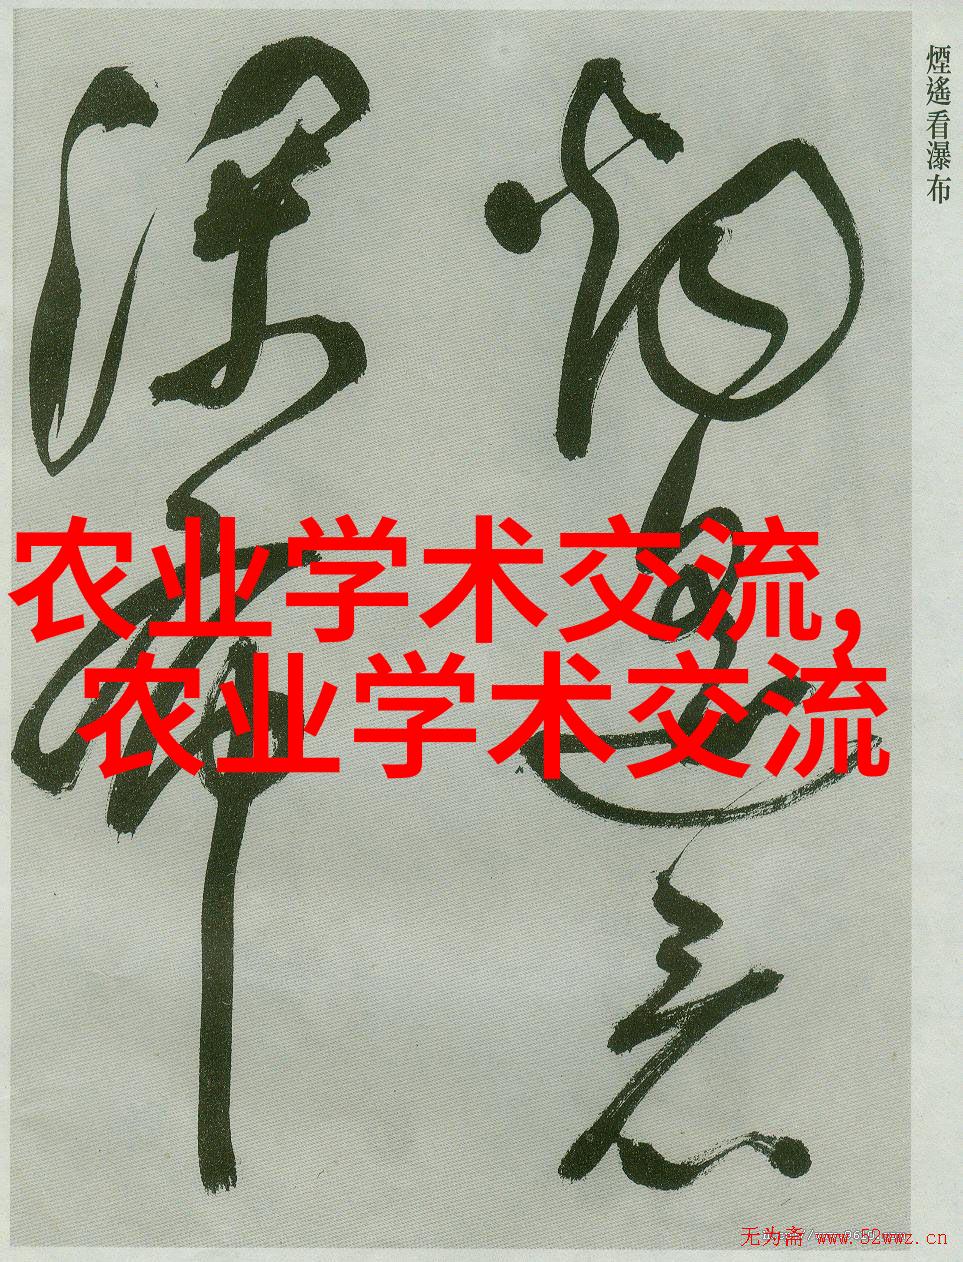 煙遙看瀑布
煙遙看
瀑布
农业学术交流,
农业学术交流
无为斋 www.52wwz.cn